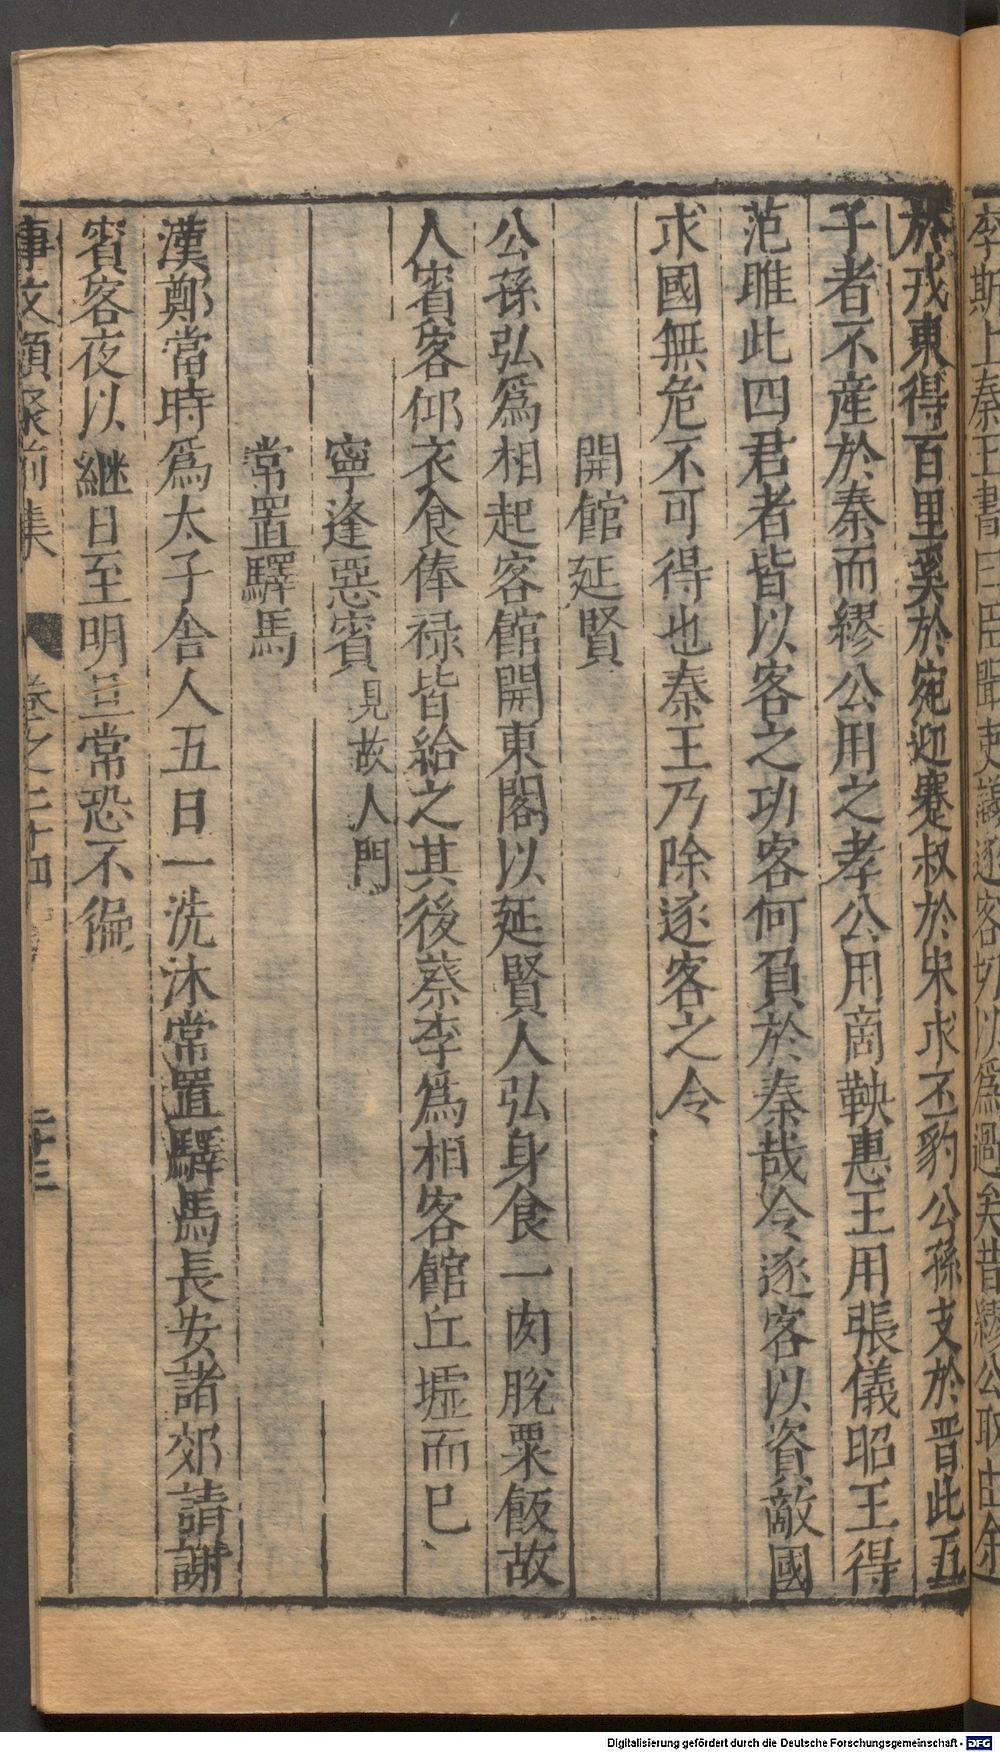 李斯上秦王書曰臣聞吏議逐客切以爲過矣昔繆公取由余
於戎東得百里奚於宛迎蹇叔於宋求丕豹公孫支於晋此五
子者不産於秦而繆公用之孝公用商鞅惠王用張儀昭王得
范雎此四君者皆以客之功客何負於秦哉今逐客以資敵國
求國無危不可得也秦王乃除逐客之令
開館延賢
公孫弘爲相起客館開東閣以延賢人弘身食一肉脫粟飯故
人賓客仰衣食俸禄皆給之其後蔡李爲相客館丘墟而已
寧逢惡賓見故人門
常置驛馬
漢鄭當時爲太子舎人五日一洗沐常置驛馬長安諸郊請謝
賓客夜以継日至明旦常恐不徧
事文類聚前集 卷之二十四 二十三
Digitalisierung gefördert durch die Deutsche Forschungsgemeinschaft - DFG